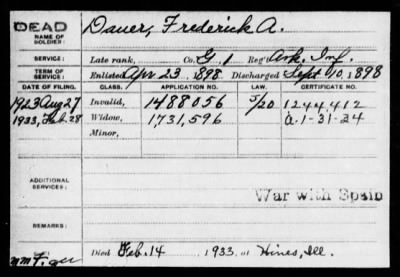 DEAD
NAME OF SOLDIER: Dauer, Frederick A.
SERVICE: Late rank, Co. G, 1 Reg't Ark. Inf.
TERM OF SERVICE: Enlisted Apr 23, 1898. Discharged Sept 10, 1898
DATE OF FILING. CLASS. APPLICATION NO. LAW. CERTIFICATE NO.
1923 Aug 27 Invalid, 1488056 5/20 1244412
1933, Feb. 28 Widow, 1731,596 a-1-31-24
Minor,
ADDITIONAL SERVICES:
War with Spain
REMARKS:
Died Feb. 14 1933. at Hines, Ill.